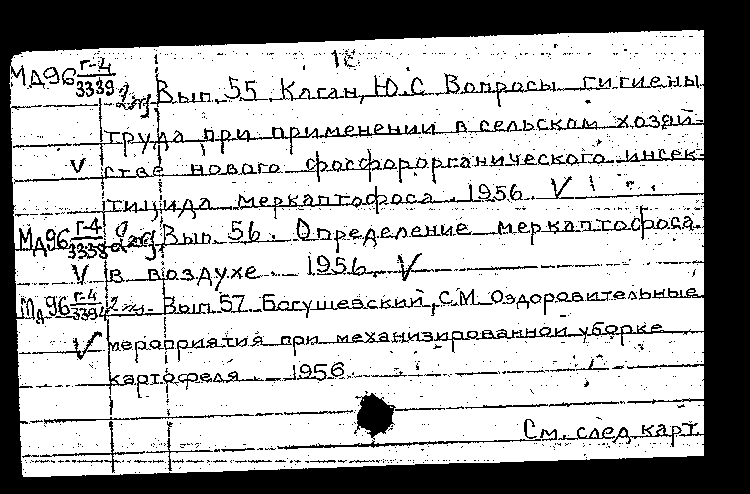 18
МД96 Г-4/3339 2эк. Вып. 55. Каган, Ю.С Вопросы гигиены
труда при применении в сельском хозяй-
V стве нового фосфорорганического инсек-
тицида меркаптофоса. 1956. V
МД96 Г-4/3338 2эк. Вып. 56. Определение меркаптофоса
V в воздухе. 1956. V
МД96 Г-4/3394 2эк. Вып. 57. Богушевский, С.М Оздоровительные
V мероприятия при механизированной уборке
картофеля. 1956.
См. след. карт